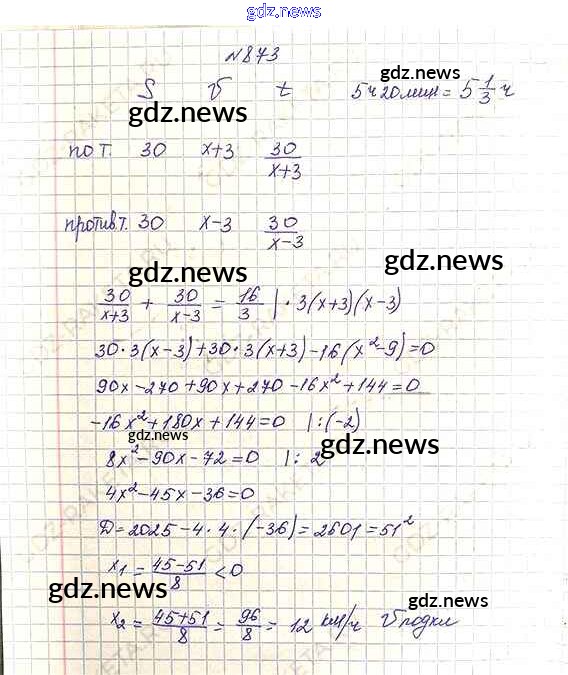 gdz.news
N873
S V t 5ч20мин = 5 1/3 ч
gdz.news
gdz.news
по т. 30 x+3 30/(x+3)
gdz.news
против.т. 30 x-3 30/(x-3)
gdz.news
gdz.news
30/(x+3) + 30/(x-3) = 16/3 | · 3(x+3)(x-3)
30·3(x-3)+30·3(x+3)-16(x²-9)=0
90x-270+90x+270-16x²+144=0
-16x²+180x+144=0 |:(-2)
gdz.news
gdz.news
8x²-90x-72=0 |: 2
4x²-45x-36=0
D=2025-4·4·(-36)=2601=51²
x₁=(45-51)/8<0
gdz.news
gdz.news
x₂=(45+51)/8=96/8=12 км/ч V лодки
gdz.news
gdz.news